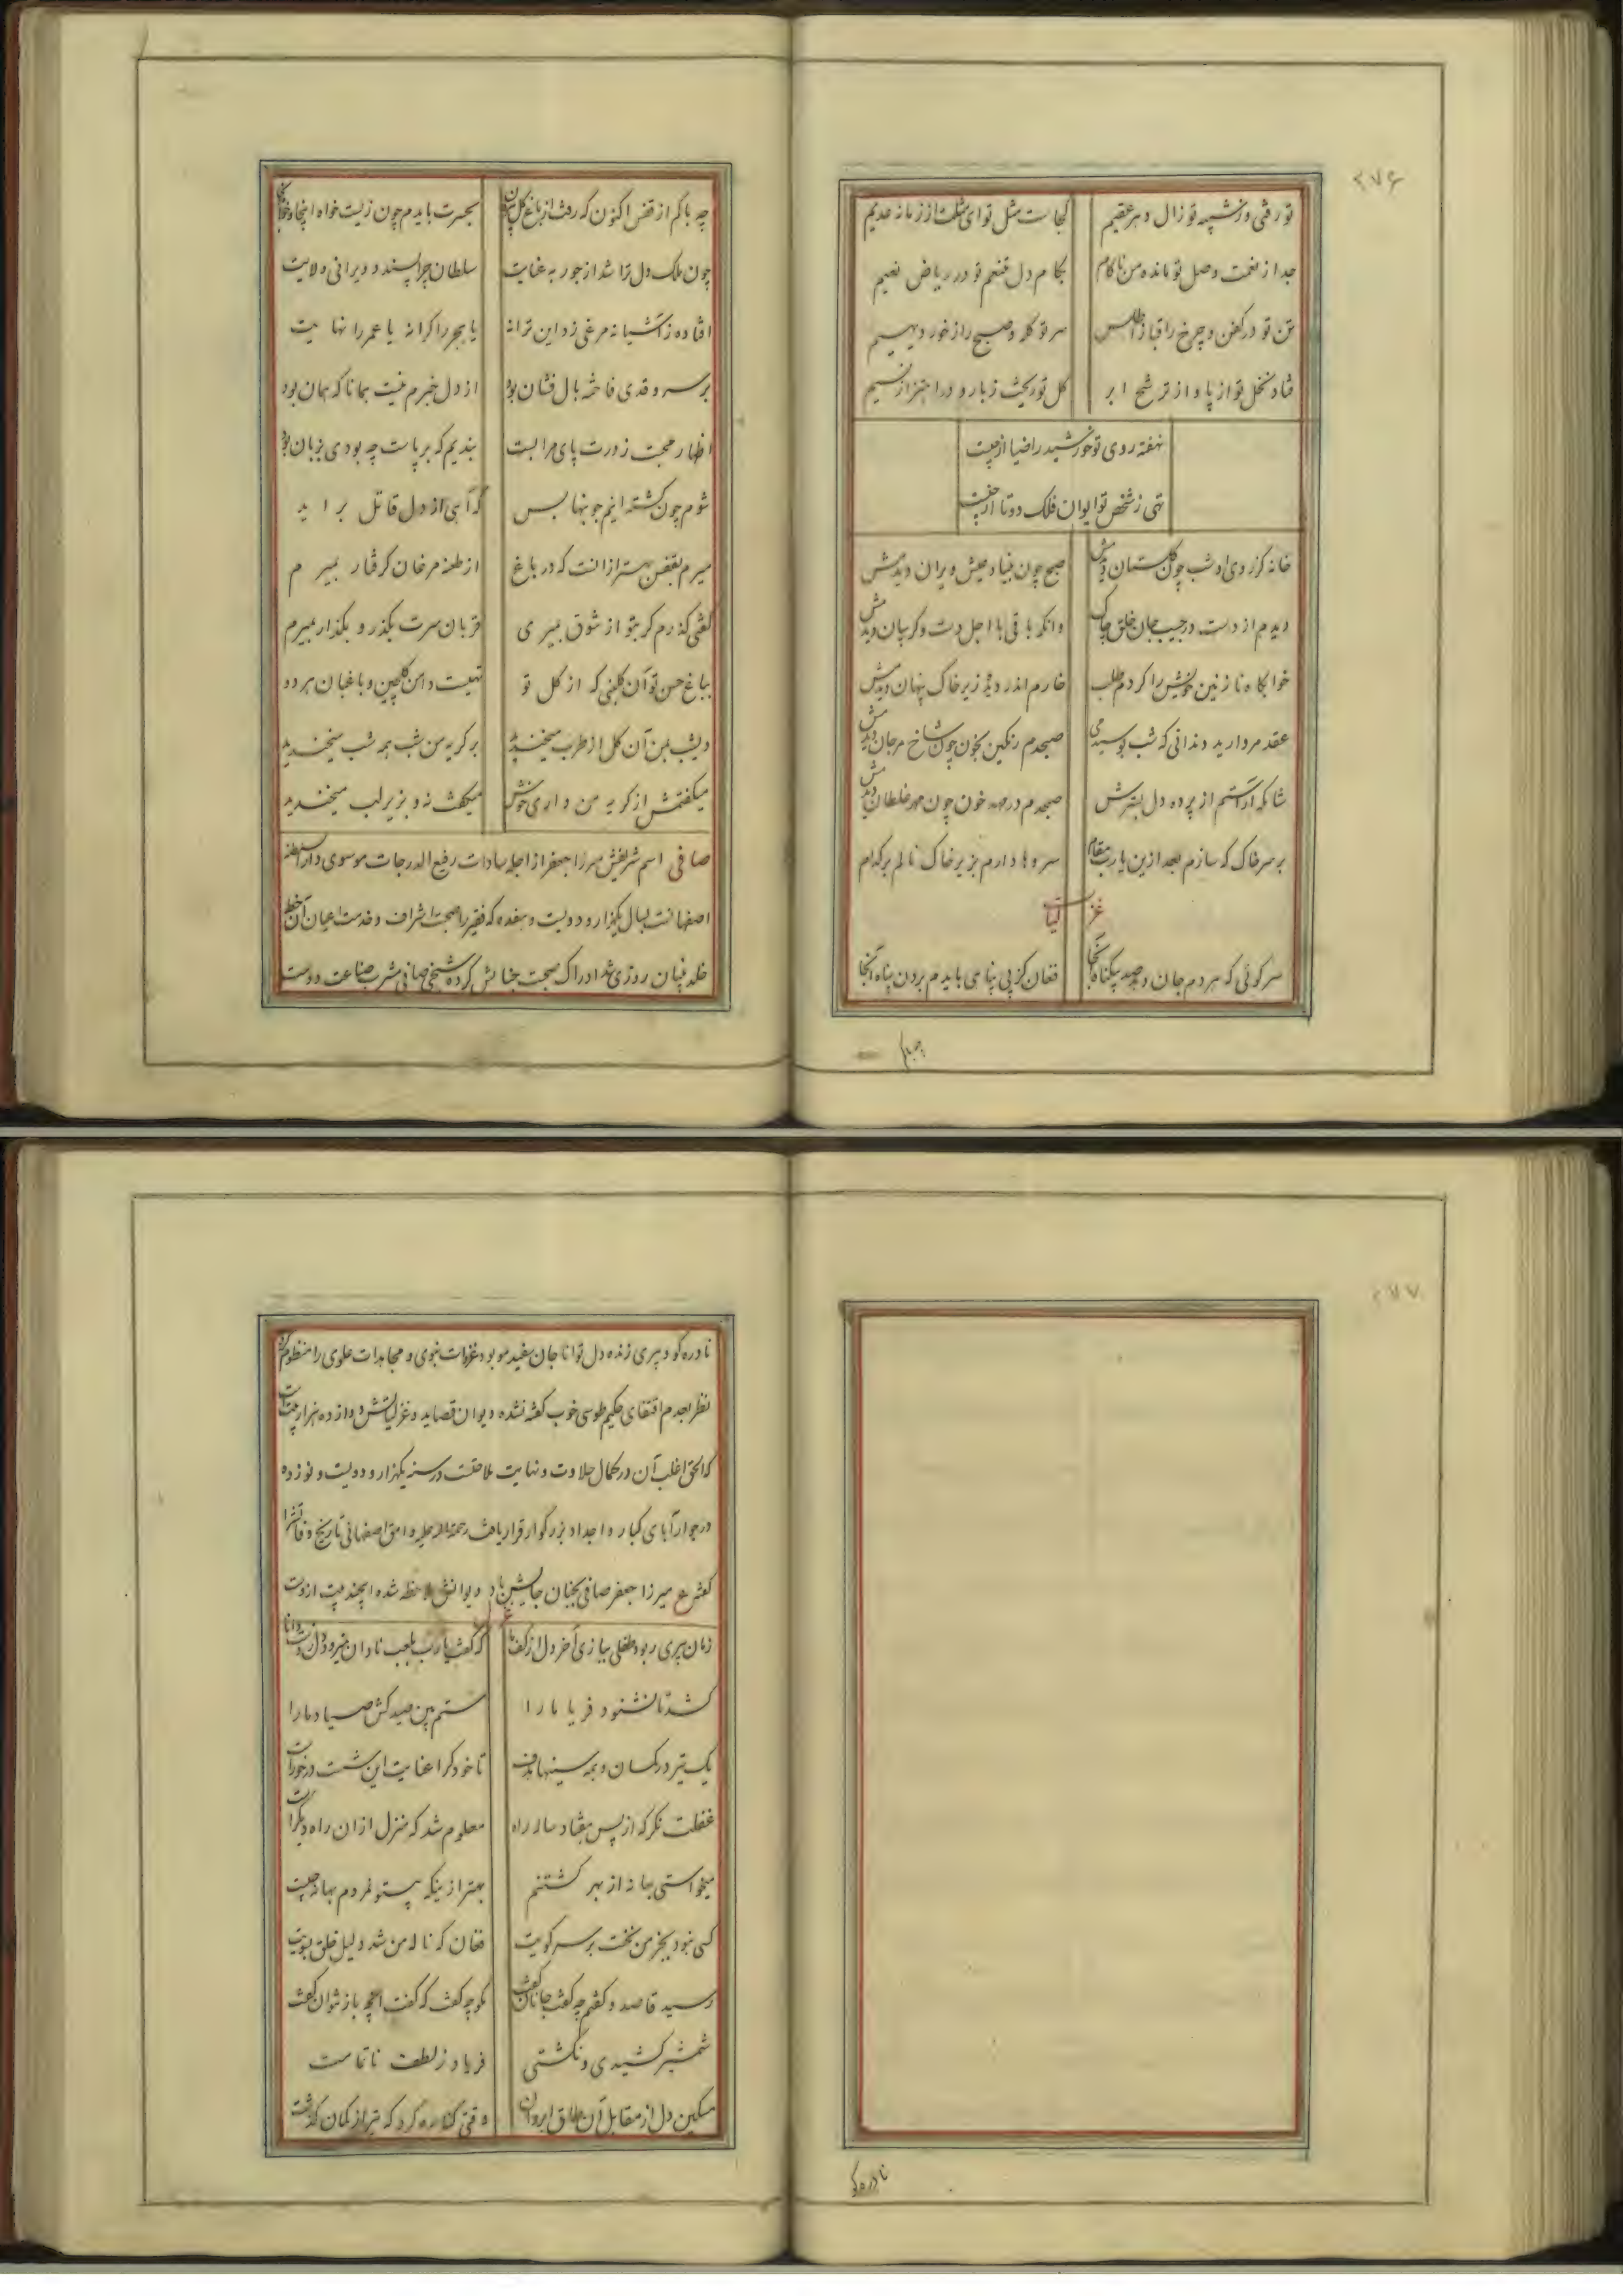 ۲۷۶
تو رفتی و ز شبیه تو زال دهر عقیم
کجاست مثل تو ای مثلت از زمانه عدیم
جدا از نعمت وصل تو مانده من ناکام
بکام دل متنعم تو در ریاض نعیم
تن تو در کفن و چرخ را قبا ز اطلس
سر تو بگل و صبح را ز خور دیهیم
فتاد نخل تو از پا و از ترشح ابر
گل تو ریخت ز بار و در اهتزاز نسیم
نهفته روی تو خورشید را ضیا از چیست
تهی ز شخص تو ایوان فلک دوتا از چیست
خانه کز روی او شب چون گلستان دیدمش
صبح چون بنیاد عیش ویران دیدمش
دیدم از دست در جیب جان خلق چاک
وانکه باقی با اجل دست و گریبان دیدمش
خوابگاه نازنین خویش را کردم طلب
خارم اندر دیده زیر خاک پنهان دیدمش
عقد مروارید دندانی که شب بوسیدمی
صبحدم رنگین بخون چون شاخ مرجان دیدمش
شامگه آراستم از پرده دل بسترش
صبحدم در مهد خون چون مهر غلطان دیدمش
بر سر خاک که سازم بعد ازین یا رب مقام
سروها دارم بزیر خاک نالم بر کدام
غزلیات
سر کوئی که هر دم جان دهد صد بیگناه آنجا
فغان کز بی پناهی بایدم بردن پناه آنجا
چه باکم از قفس اکنون که رفت از باغ گل بیرون
بحسرت بایدم چون زیست خواه اینجا و خواه آنجا
چون ملک دل ترا شد از جور به عنایت
سلطان چرا پسندد ویرانی ولایت
افتاده ز آشیانه مرغی زد این ترانه
یا هجر را کرانه یا عمر را نهایت
بر سرو قدی فاخته بال فشان بود
از دل خبرم نیست همانا که همان بود
اظهار محبت ز درت پای مرا بست
بندیم که بر پات چه بودی بزبان بود
شوم چون کشته اینم خونبها بس
که آهی از دل قاتل برآید
میرم بقفس بهتر از انست که در باغ
از طعنه مرغان گرفتار بمیرم
گفتی گذرم گر بتو از شوق بمیری
قربان سرت بگذر و بگذار بمیرم
بباغ حسن تو آن گلبنی که از گل تو
تهیست دامن گلچین و باغبان هر دو
دیشب بمن آن گل از طرب میخندید
بر گریه من شب همه شب میخندید
میگفتمش از گریه من داری خوش
میگفت نه و بزیر لب میخندید
صافی اسم شریفش میرزا جعفر از اجله سادات رفیع الدرجات موسوی دارالسلطنه
اصفهانست بسال یکهزار و دویست و هفده که فقیر را صحبت اشراف و خدمت اعیان آن خطه
خلد بنیان روزی شد ادراک صحبت جنابش کرده شیخی صافی مشرب صناعت دوست
۲۷۷
نادره گو
نادره گو و پیری زنده دل توانا جان سفید مو بود غزوات نبوی و مجاهدات علوی را منظوم کرده
نظر بعدم اقتفای حکیم طوسی خوب گفته نشده دیوان قصاید و غزلیاتش دوازده هزار بیت است
که الحق اغلب آن در کمال حلاوت و نهایت ملاحتست در سنه یکهزار و دویست و نوزده
در جوار آبای کبار و اجداد بزرگوار قرار یافت رحمة الله علیه وامق اصفهانی تاریخ وفاتش را
گفته ع میرزا جعفر صافی بجنان جایش باد دیوانش ملاحظه شده اینچند بیت ازوست
زمان پیری ربود طفلی ببازی آخر دل از کف ما
که گفت یا رب بلعب نادان نمیرود دل ز دست دانا
کشد تا نشنود فریاد ما را
ستم بین صید کش صیاد ما را
یک تیر در کمان و همه سینها هدف
تا خود کرا عنایت این شست درخورست
غفلت نگر که از پس هفتاد ساله راه
معلوم شد که منزل ازان راه دیگرست
میخواستی بهانه از بهر کشتنم
بهتر ازینکه بیتو نمردم بهانه چیست
کسی نبود بجز من نخست بر سر کویت
فغان که ناله من شد دلیل خلق بسویت
رسید قاصد و گفتم چه گفت جانان گفت
مگو چه گفت که گفت آنچه باز نتوان گفت
شمشیر کشیدی و نکشتی
فریاد ز لطف ناتمامت
مسکین دل از مقابل آن طاق ابروان
وقتی کناره کرد که تیر از کمان گذشت